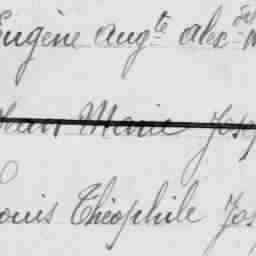 Eugène Aug.te Alex
Jean Marie Jos
Louis Théophile Jos